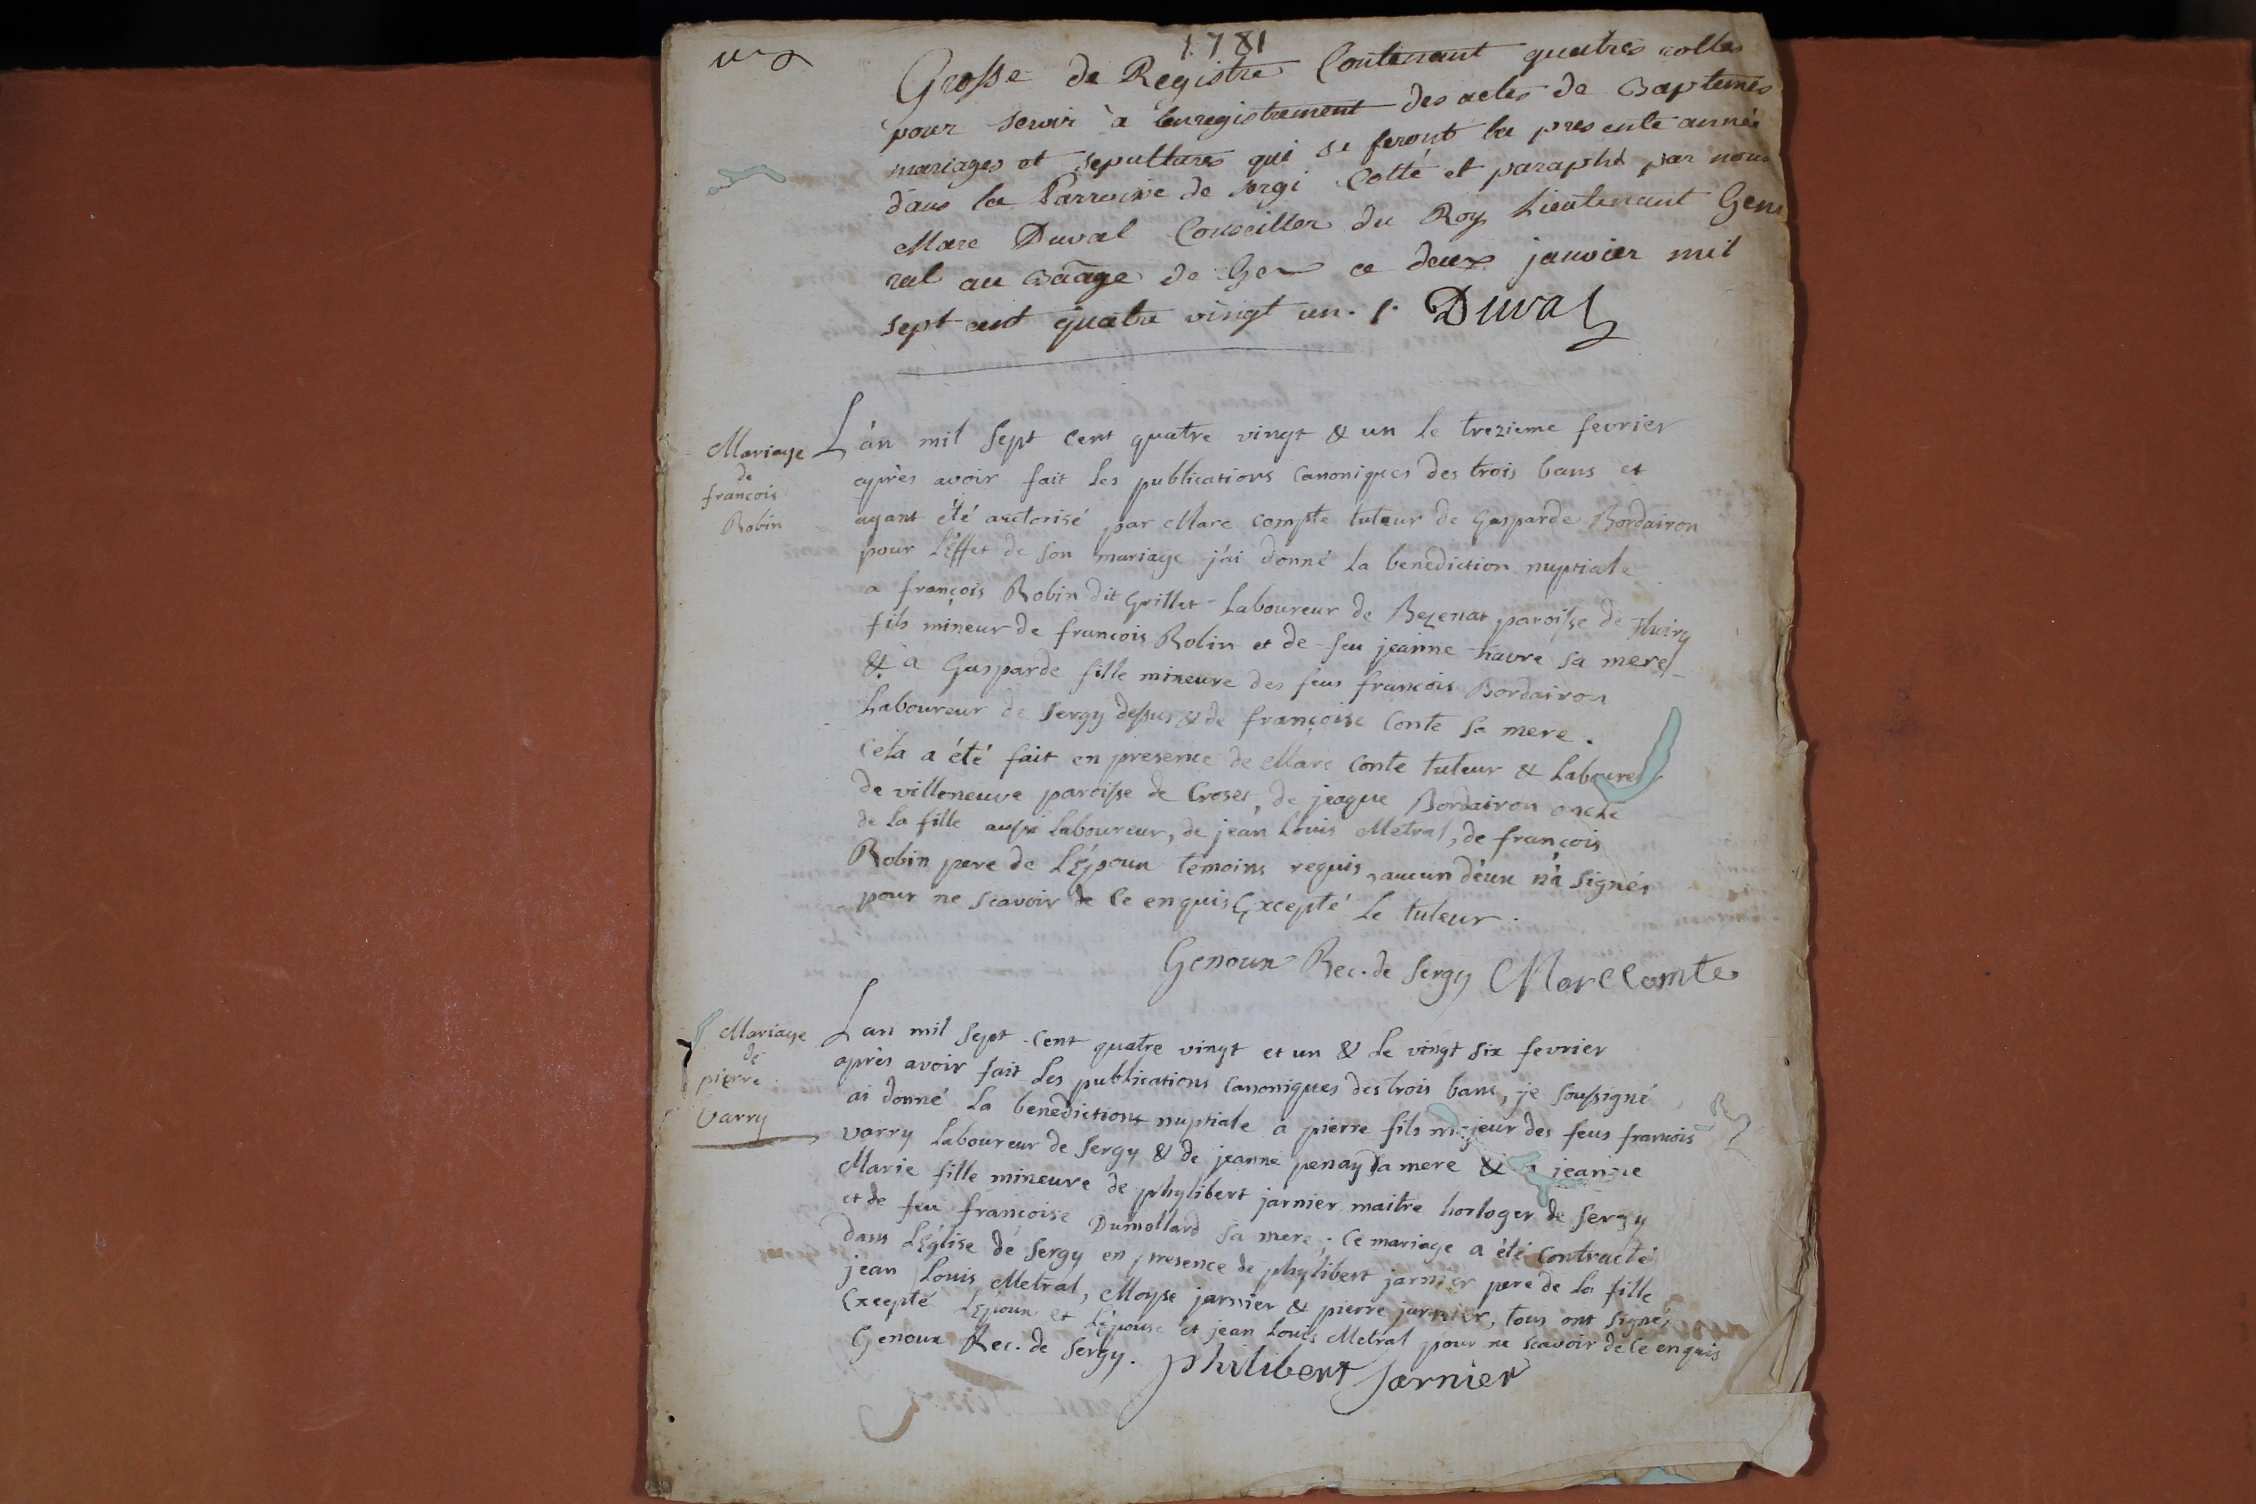 1781
Grosse de Registre Contenant quatres cottes
pour servir à lenregistrement des actes de Baptemes
mariages et sepultures qui se feront la presente année
dans la Parroisse de sergi Cotté et paraphé par nous
Marc Duval Conseiller du Roy Lieutenant Gene
ral au Baãge de Gex ce deux janvier mil
sept cent quatre vingt un. /. Duval
Mariage
de
francois
Robin
L'an mil sept cent quatre vingt & un le trezieme fevrier
après avoir fait les publications canoniques des trois bans et
ayant été auctorisé par Marc compte tuteur de Gasparde Bordairon
pour l'Effet de son mariage j'ai donné la benediction nuptiale
a françois Robin dit Grillet Laboureur de Bezenat paroisse de Thoiry
fils mineur de francois Robin et de feu jeanne havre sa mere
& a Gasparde fille mineure des feus francois Bordairon
Laboureur de Sergy dessus & de françoise Conte sa mere.
Cela a été fait en presence de Marc Conte tuteur & Laboureur
de villeneuve paroisse de Croset, de jeaque Bordairon oncle
de la fille aussi laboureur, de jean Louis Metral, de francois
Robin pere de l'Epoux temoins requis, aucun d'eux n'a signés
pour ne scavoir de ce enquis Excepté Le tuteur.
Genoux Rec. de Sergy Marc Comte
Mariage
de
pierre
Varry
Lan mil sept cent quatre vingt et un & le vingt six fevrier
après avoir fait les publications canoniques des trois bans, je soussigné
ai donné la benediction nuptiale a pierre fils majeur des feus francois
varry Laboureur de Sergy & de jeanne penay sa mere & a jeanne
Marie fille mineure de phylibert jarnier maitre horloger de Sergy
et de feu françoise Dumollard sa mere; Ce mariage a été contracté
dans l'Eglise de Sergy en presence de phylibert jarnier pere de la fille
jean Louis Metral, Moyse jarnier & pierre jarnier, tous ont signé,
Excepté l'Epoux et l'Epouse et jean Louis Metral pour ne scavoir de ce enquis
Genoux Rec. de Sergy. philibert Jarnier